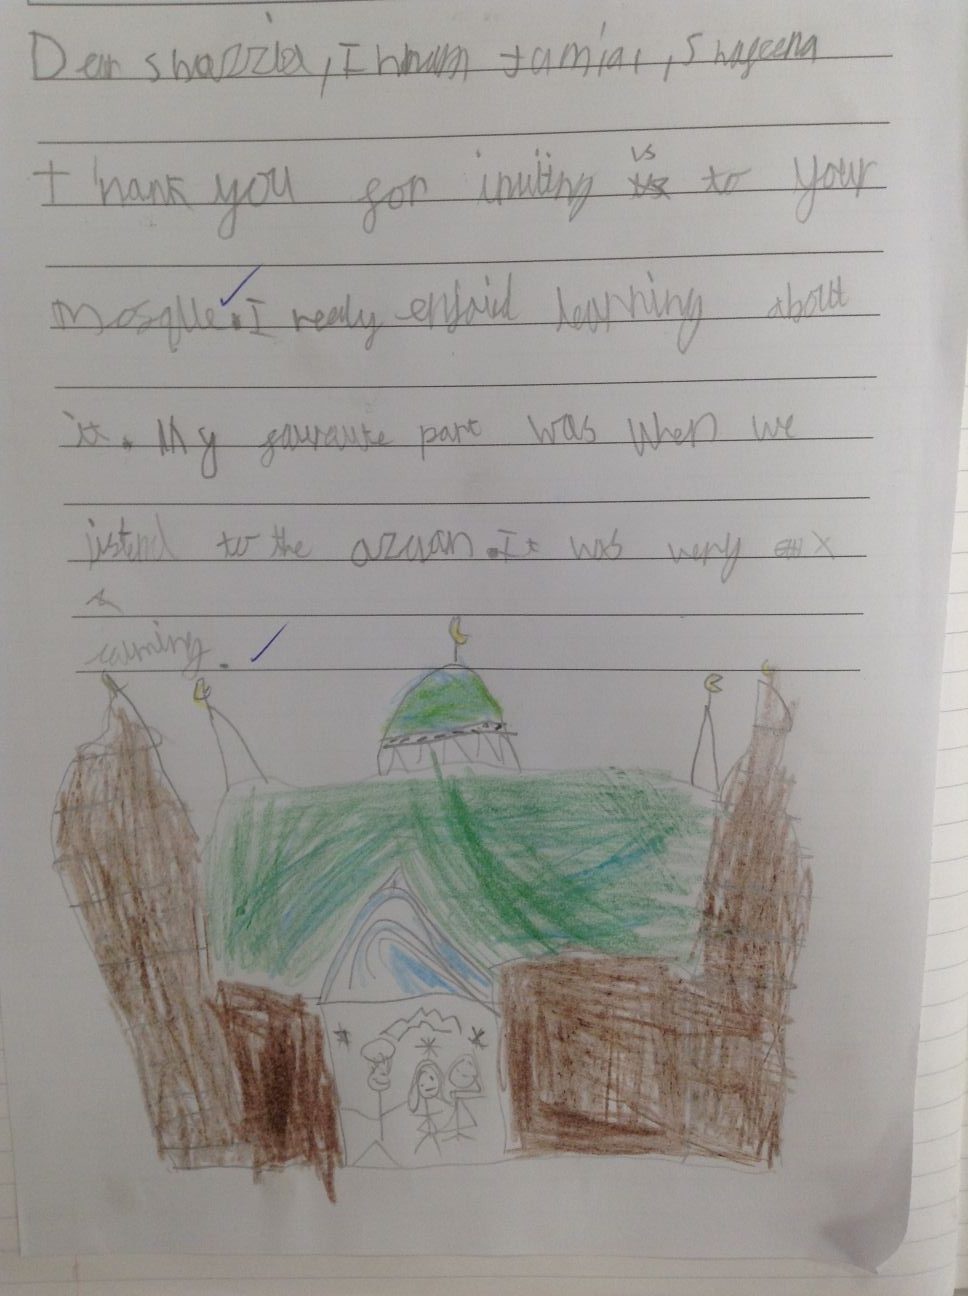 Dear shazzia, Ihnam tamiar, Shageena
thank you for inviting us to your
mosque. I realy enjoid learning about
it. My fauraute part was when we
listend to the azuan. It was very
caming.